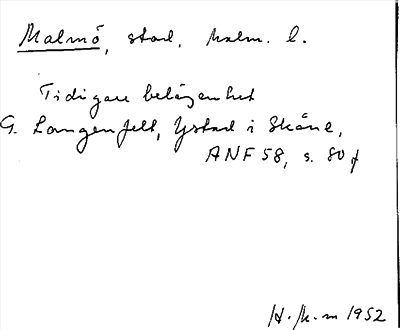 Malmö, stad, Malm. l.
Tidigare belägenhet
G. Langenfelt, Ystad i Skåne,
ANF 58, s. 80 f
1952